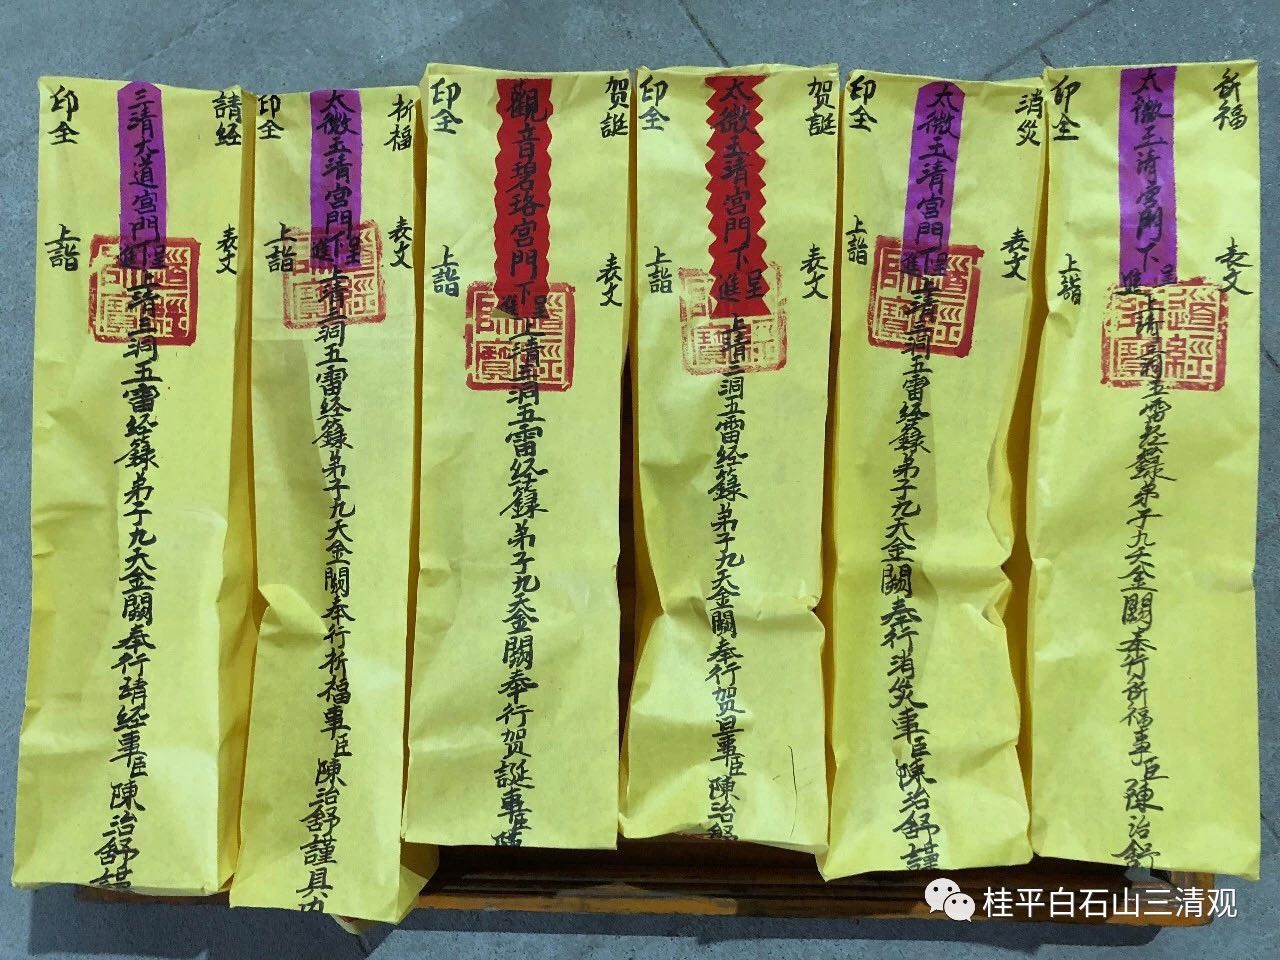 請经 表文
三清大道宫門下呈進上清三洞五雷经籙弟子九天金闕奉行請经事臣陳治舒謹
印全 上詣
道經師寳
祈福 表文
太微玉清宫門下呈進上清三洞五雷经籙弟子九天金闕奉行祈福事臣陳治舒謹具
印全 上詣
道經師寳
贺誕 表文
觀音碧珞宫門下呈進上清三洞五雷经籙弟子九天金闕奉行贺誕事臣陳
印全 上詣
道經師寳
贺誕 表文
太微玉清宫門下呈進上清三洞五雷经籙弟子九天金闕奉行贺事臣陳治舒
印全 上詣
道經師寳
消災 表文
太微玉清宫門下呈進上清三洞五雷经籙弟子九天金闕奉行消災事臣陳治舒謹
印全 上詣
道經師寳
祈福 表文
太微玉清宫門下呈進上清三洞五雷经籙弟子九天金闕奉行祈福事臣陳治舒
印全 上詣
道經師寳
桂平白石山三清观